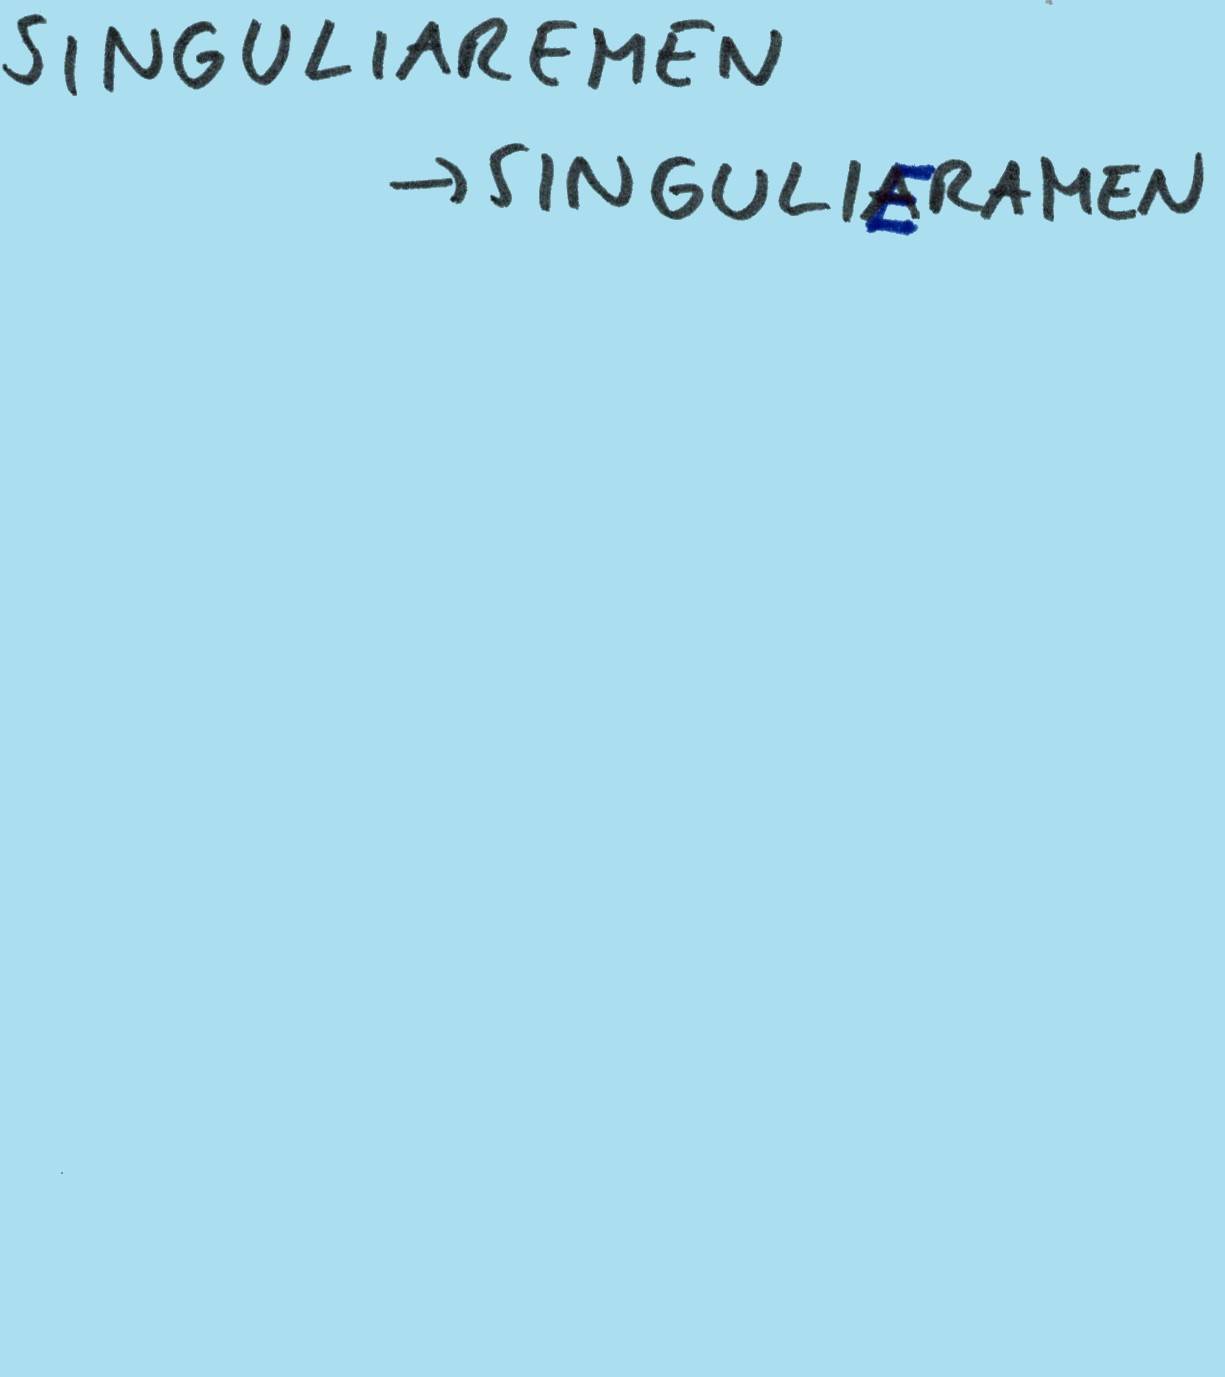 SINGULIAREMEN
→ SINGULIERAMEN